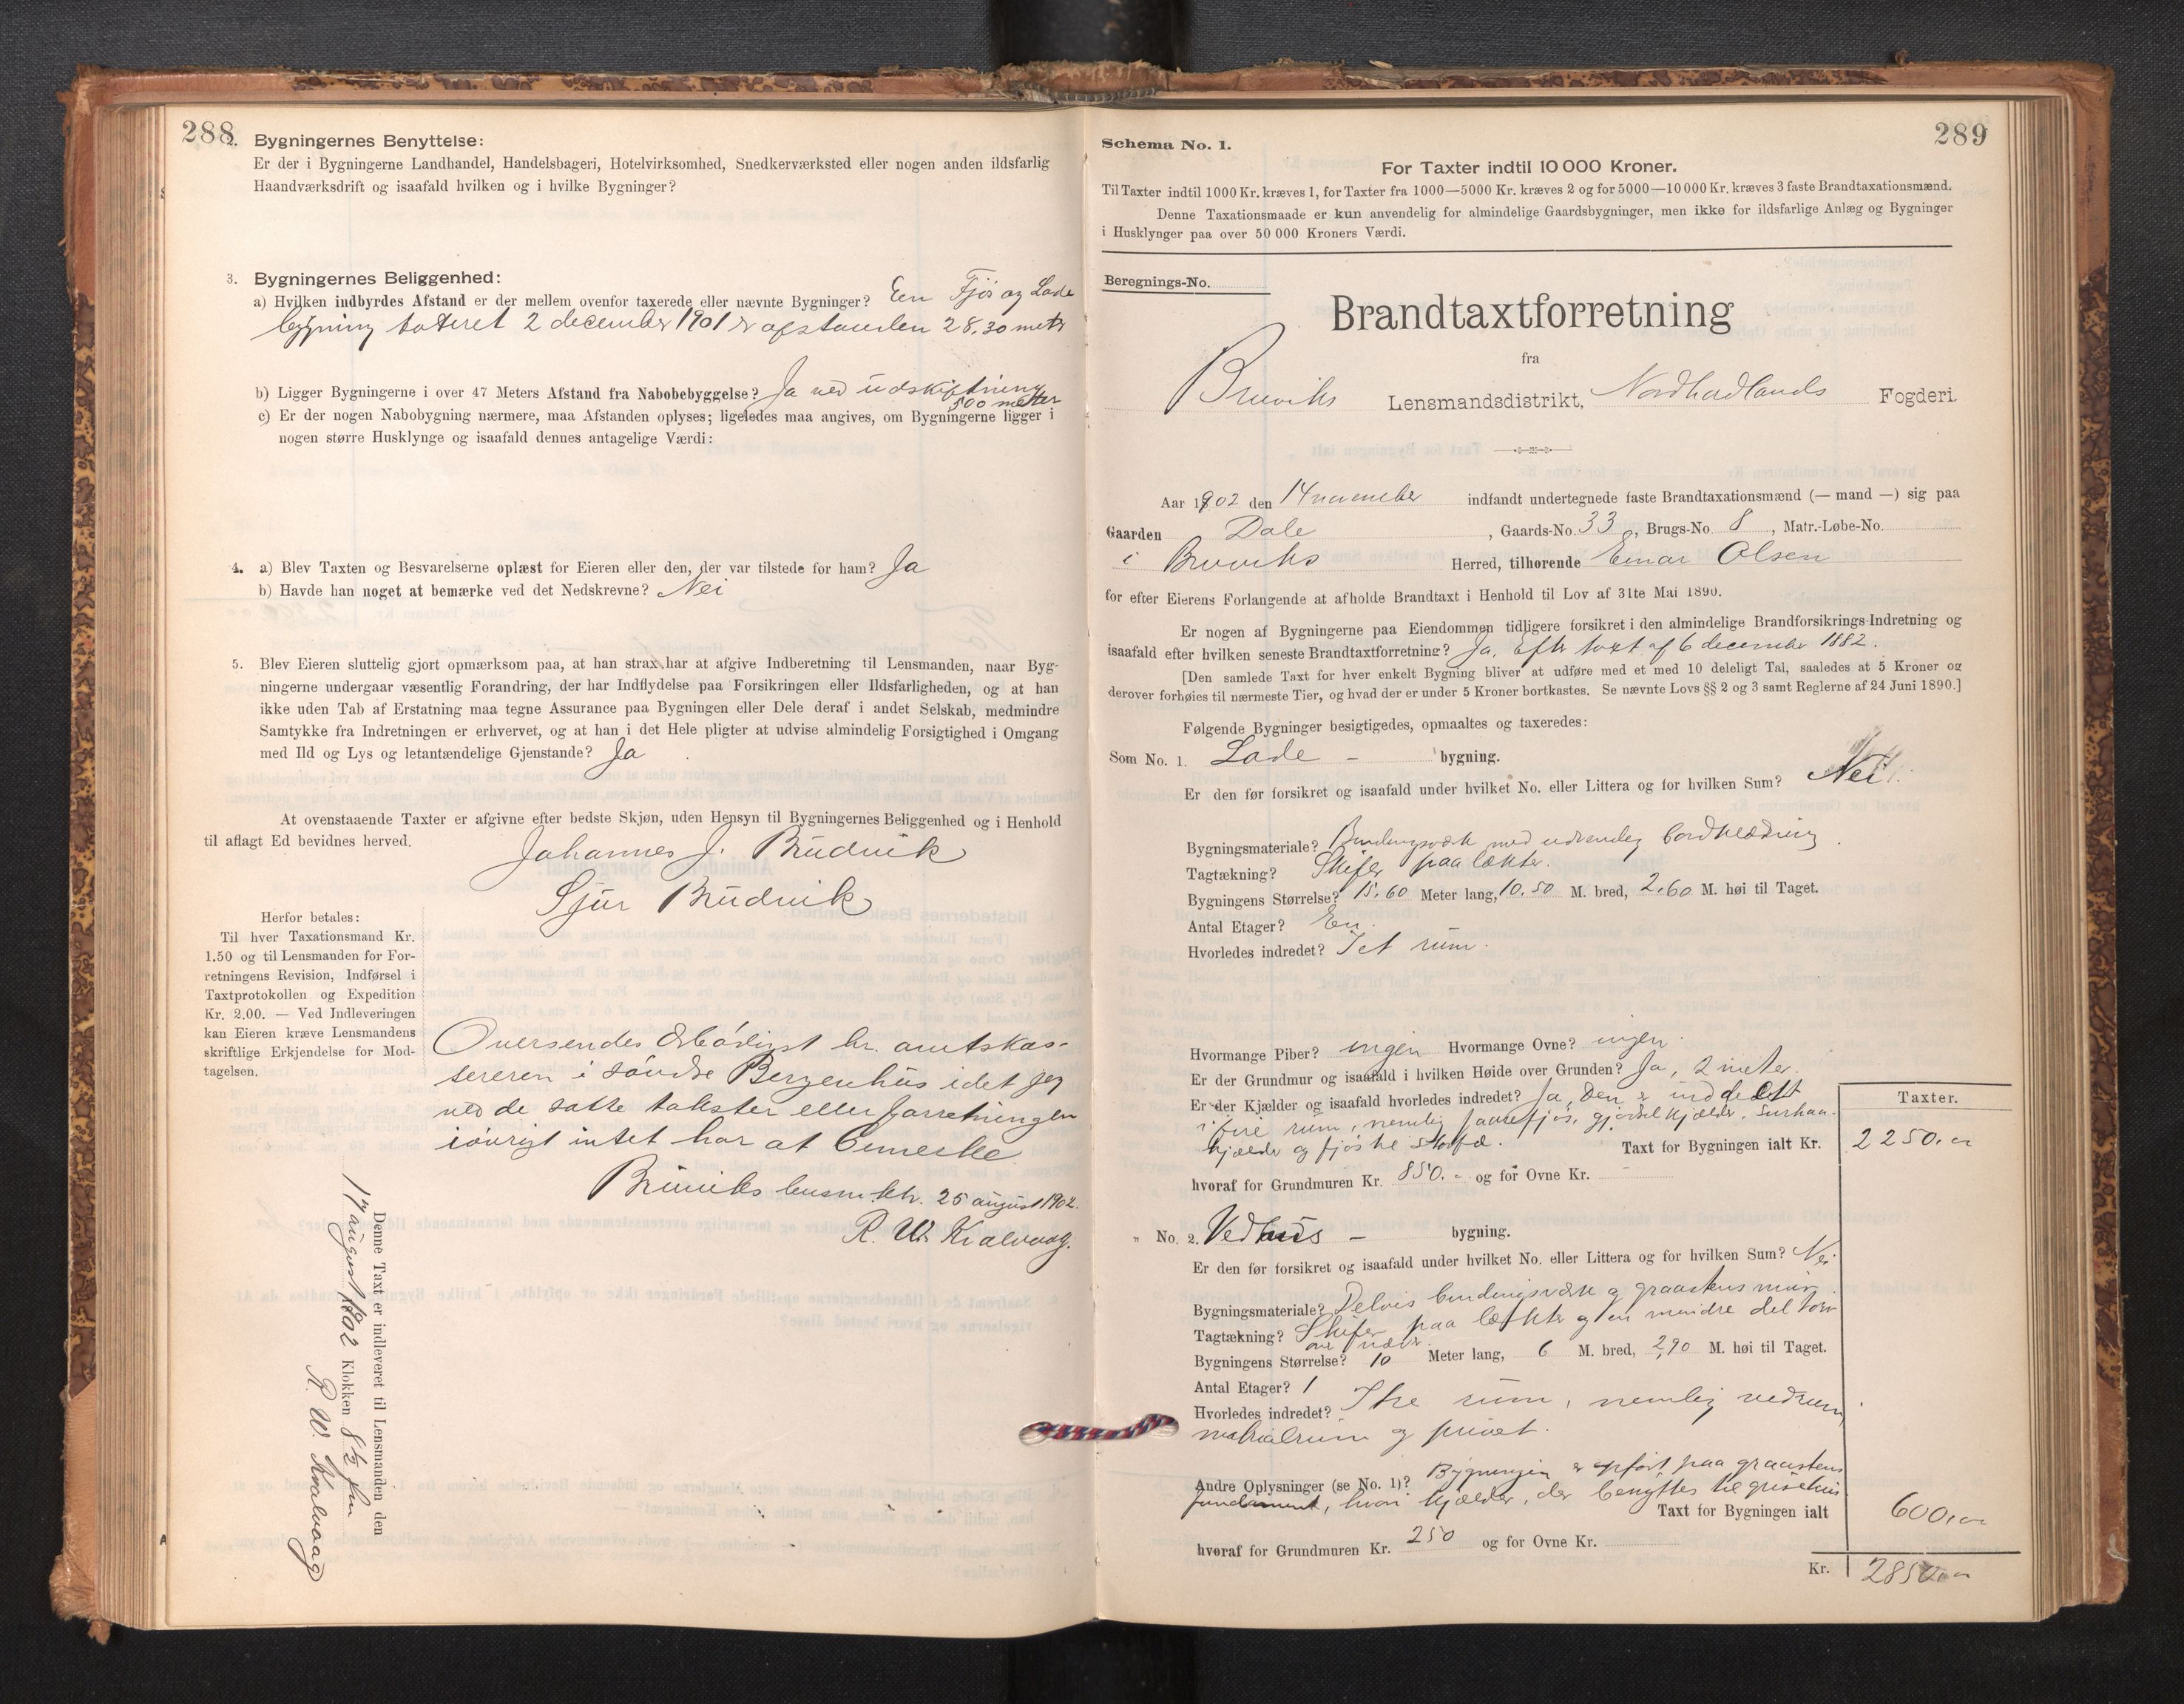 288
2. Bygningernes Benyttelse:
Er der i Bygningerne Landhandel, Handelsbageri, Hotelvirksomhed, Snedkerværksted eller nogen anden ildsfarlig
Haandværksdrift og isaafald hvilken og i hvilke Bygninger?
3. Bygningernes Beliggenhed:
a) Hvilken indbyrdes Afstand er der mellem ovenfor taxerede eller nævnte Bygninger? Een Fjøs og Lade
bygning taxeret 2 december 1901 er afstanden 28.30 meter
b) Ligger Bygningerne i over 47 Meters Afstand fra Nabobebyggelse? Ja ved udskiftning
500 metter
c) Er der nogen Nabobygning nærmere, maa Afstanden oplyses; ligeledes maa angives, om Bygningerne ligger i
nogen større Husklynge og isaafald dennes antagelige Værdi:
4. a) Blev Taxten og Besvarelserne oplæst for Eieren eller den, der var tilstede for ham? Ja
b) Havde han noget at bemærke ved det Nedskrevne? Nei
5. Blev Eieren sluttelig gjort opmærksom paa, at han strax har at afgive Indberetning til Lensmanden, naar Byg-
ningerne undergaar væsentlig Forandring, der har Indflydelse paa Forsikringen eller Ildsfarligheden, og at han
ikke uden Tab af Erstatning maa tegne Assurance paa Bygningen eller Dele deraf i andet Selskab, medmindre
Samtykke fra Indretningen er erhvervet, og at han i det Hele pligter at udvise almindelig Forsigtighed i Omgang
med Ild og Lys og letantændelige Gjenstande? Ja
At ovenstaaende Taxter er afgivne efter bedste Skjøn, uden Hensyn til Bygningernes Beliggenhed og i Henhold
til aflagt Ed bevidnes herved.
Johannes J. Brudvik
Sjur Brudvik
Herfor betales:
Til hver Taxationsmand Kr.
1.50 og til Lensmanden for For-
retningens Revision, Indførsel i
Taxtprotokollen og Expedition
Kr. 2.00. — Ved Indleveringen
kan Eieren kræve Lensmandens
skriftlige Erkjendelse for Mod-
tagelsen.
Oversendes ærbødigst hr. amtskas-
sereren i søndre Bergenhus idet jeg
ved de satte takster eller forretningen
iøvrigt intet har at bemerke
Bruviks lensm.ktr. 25 august 1902.
R. W. Kvalvaag.
Denne Taxt er indleveret til Lensmanden den
17 august 1902 Klokken 8 ½ fm
R. W. Kvalvaag
289
Schema No. 1.
For Taxter indtil 10 000 Kroner.
Til Taxter indtil 1000 Kr. kræves 1, for Taxter fra 1000—5000 Kr. kræves 2 og for 5000—10 000 Kr. kræves 3 faste Brandtaxationsmænd.
Denne Taxationsmaade er kun anvendelig for almindelige Gaardsbygninger, men ikke for ildsfarlige Anlæg og Bygninger
i Husklynger paa over 50 000 Kroners Værdi.
Beregnings-No.
Brandtaxtforretning
fra
Bruviks Lensmandsdistrikt, Nordhordlands Fogderi.
Aar 1902 den 14 november indfandt undertegnede faste Brandtaxationsmænd (— mand —) sig paa
Gaarden Dale, Gaards-No. 33, Brugs-No. 8, Matr.-Løbe-No.
i Bruviks Herred, tilhørende Einar Olsen
for efter Eierens Forlangende at afholde Brandtaxt i Henhold til Lov af 31te Mai 1890.
Er nogen af Bygningerne paa Eiendommen tidligere forsikret i den almindelige Brandforsikrings-Indretning og
isaafald efter hvilken seneste Brandtaxtforretning? Ja, Efter taxt af 6 december 1882.
[Den samlede Taxt for hver enkelt Bygning bliver at udføre med et med 10 deleligt Tal, saaledes at 5 Kroner og
derover forhøies til nærmeste Tier, og hvad der er under 5 Kroner bortkastes. Se nævnte Lovs §§ 2 og 3 samt Reglerne af 24 Juni 1890.]
Følgende Bygninger besigtigedes, opmaaltes og taxeredes:
Som No. 1. Lade - bygning.
Er den før forsikret og isaafald under hvilket No. eller Littera og for hvilken Sum? Nei
Bygningsmateriale? Bindingsværk med udvendig bordklædning.
Tagtækning? Skifer paa lækter.
Bygningens Størrelse? 15.60 Meter lang, 10.50 M. bred, 2.60 M. høi til Taget.
Antal Etager? En.
Hvorledes indredet? I et rum.
Hvormange Piber? ingen Hvormange Ovne? ingen.
Er der Grundmur og isaafald i hvilken Høide over Grunden? Ja, 2 meter.
Er der Kjælder og isaafald hvorledes indredet? Ja, Den er inddelt
i fire rum, nemlig faarefjøs, gjødselkjælder, surhaa-
kjælder og fjøs til storfæ.
Taxter.
Taxt for Bygningen ialt Kr. 2250.00
hvoraf for Grundmuren Kr. 850. - og for Ovne Kr.
" No. 2. Vedhus - bygning.
Er den før forsikret og isaafald under hvilket No. eller Littera og for hvilken Sum? Nei
Bygningsmateriale? Delvis bindingsværk og graastens mur.
Tagtækning? Skifer paa lækter og en mindre del torv
over næver.
Bygningens Størrelse? 10 Meter lang, 6 M. bred, 2,90 M. høi til Taget.
Antal Etager? 1
Hvorledes indredet? I tre rum, nemlig vedrum,
matrialrum og privet.
Andre Oplysninger (se No. 1)? Bygningen er opført paa graastens
fundament, hvori kjælder, der benyttes til grisehus
Taxt for Bygningen ialt 600,00
hvoraf for Grundmuren Kr. 250 og for Ovne Kr.
Kr. 2850.00